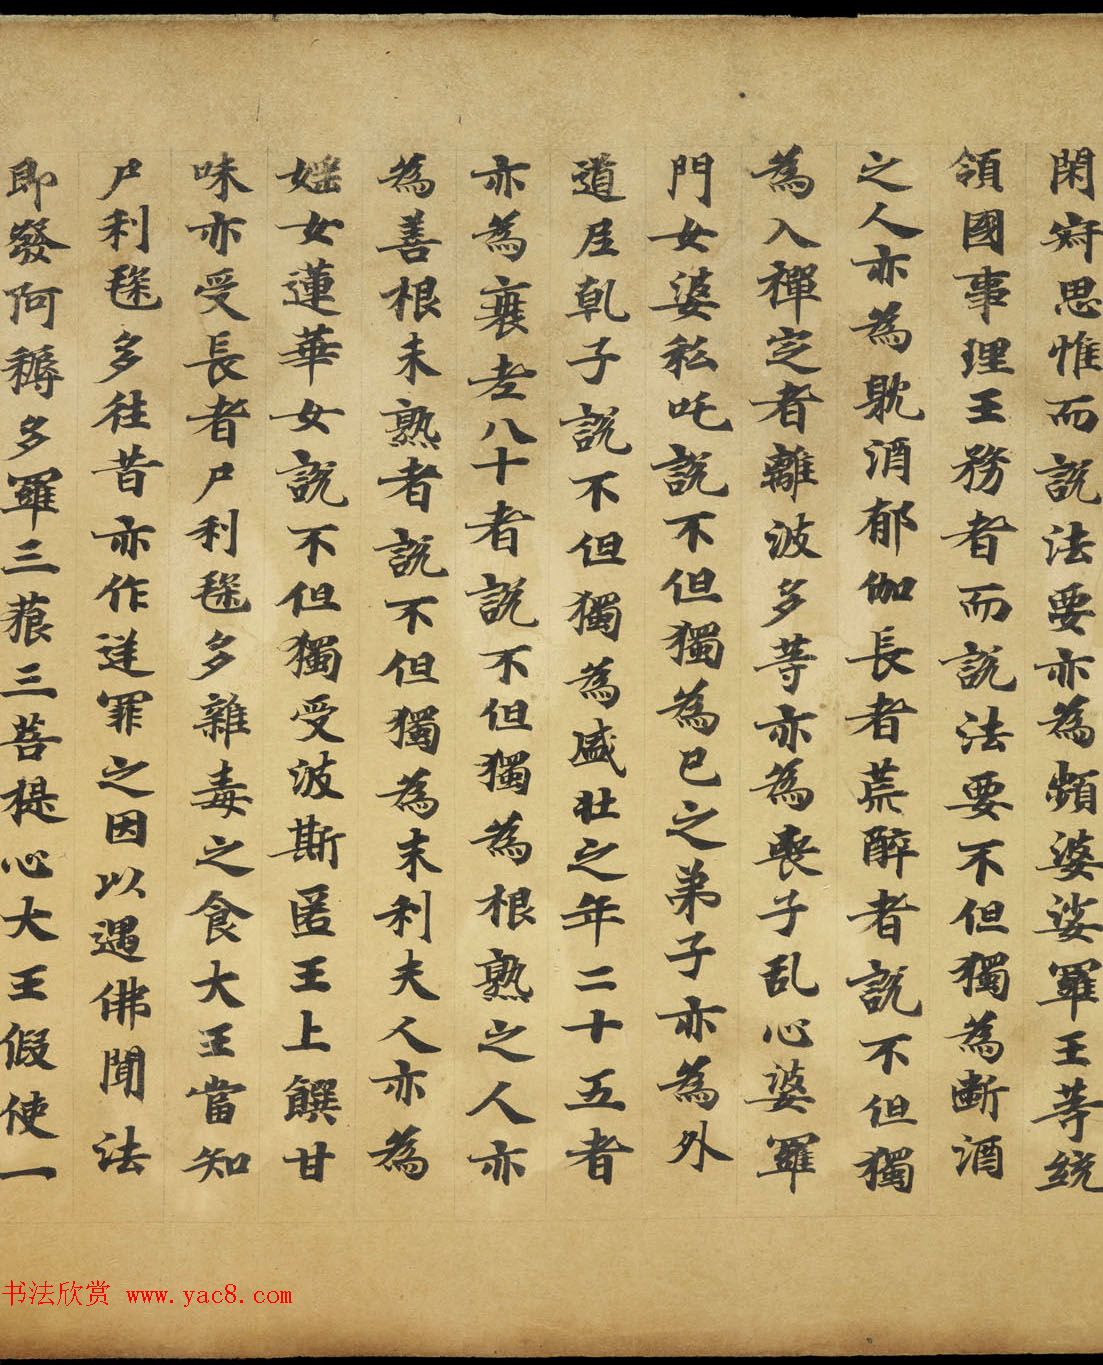 閑宷思惟而説法要亦為頻婆娑羅王等統
領國事理王務者而説法要不但獨為断酒
之人亦為躭酒郁伽長者荒醉者説不但獨
為入禪定者離波多等亦為喪子乱心婆羅
門女婆私吒説不但獨為已之弟子亦為外
道尼乹子説不但獨為盛壮之年二十五者
亦為衰老八十者説不但獨為根熟之人亦
為善根未熟者説不但獨為末利夫人亦為
婬女蓮華女説不但獨受波斯匿王上饌甘
味亦受長者尸利毱多雜毒之食大王當知
尸利毱多往昔亦作逆罪之因以遇佛聞法
即發阿耨多羅三藐三菩提心大王假使一
书法欣赏 www.yac8.com